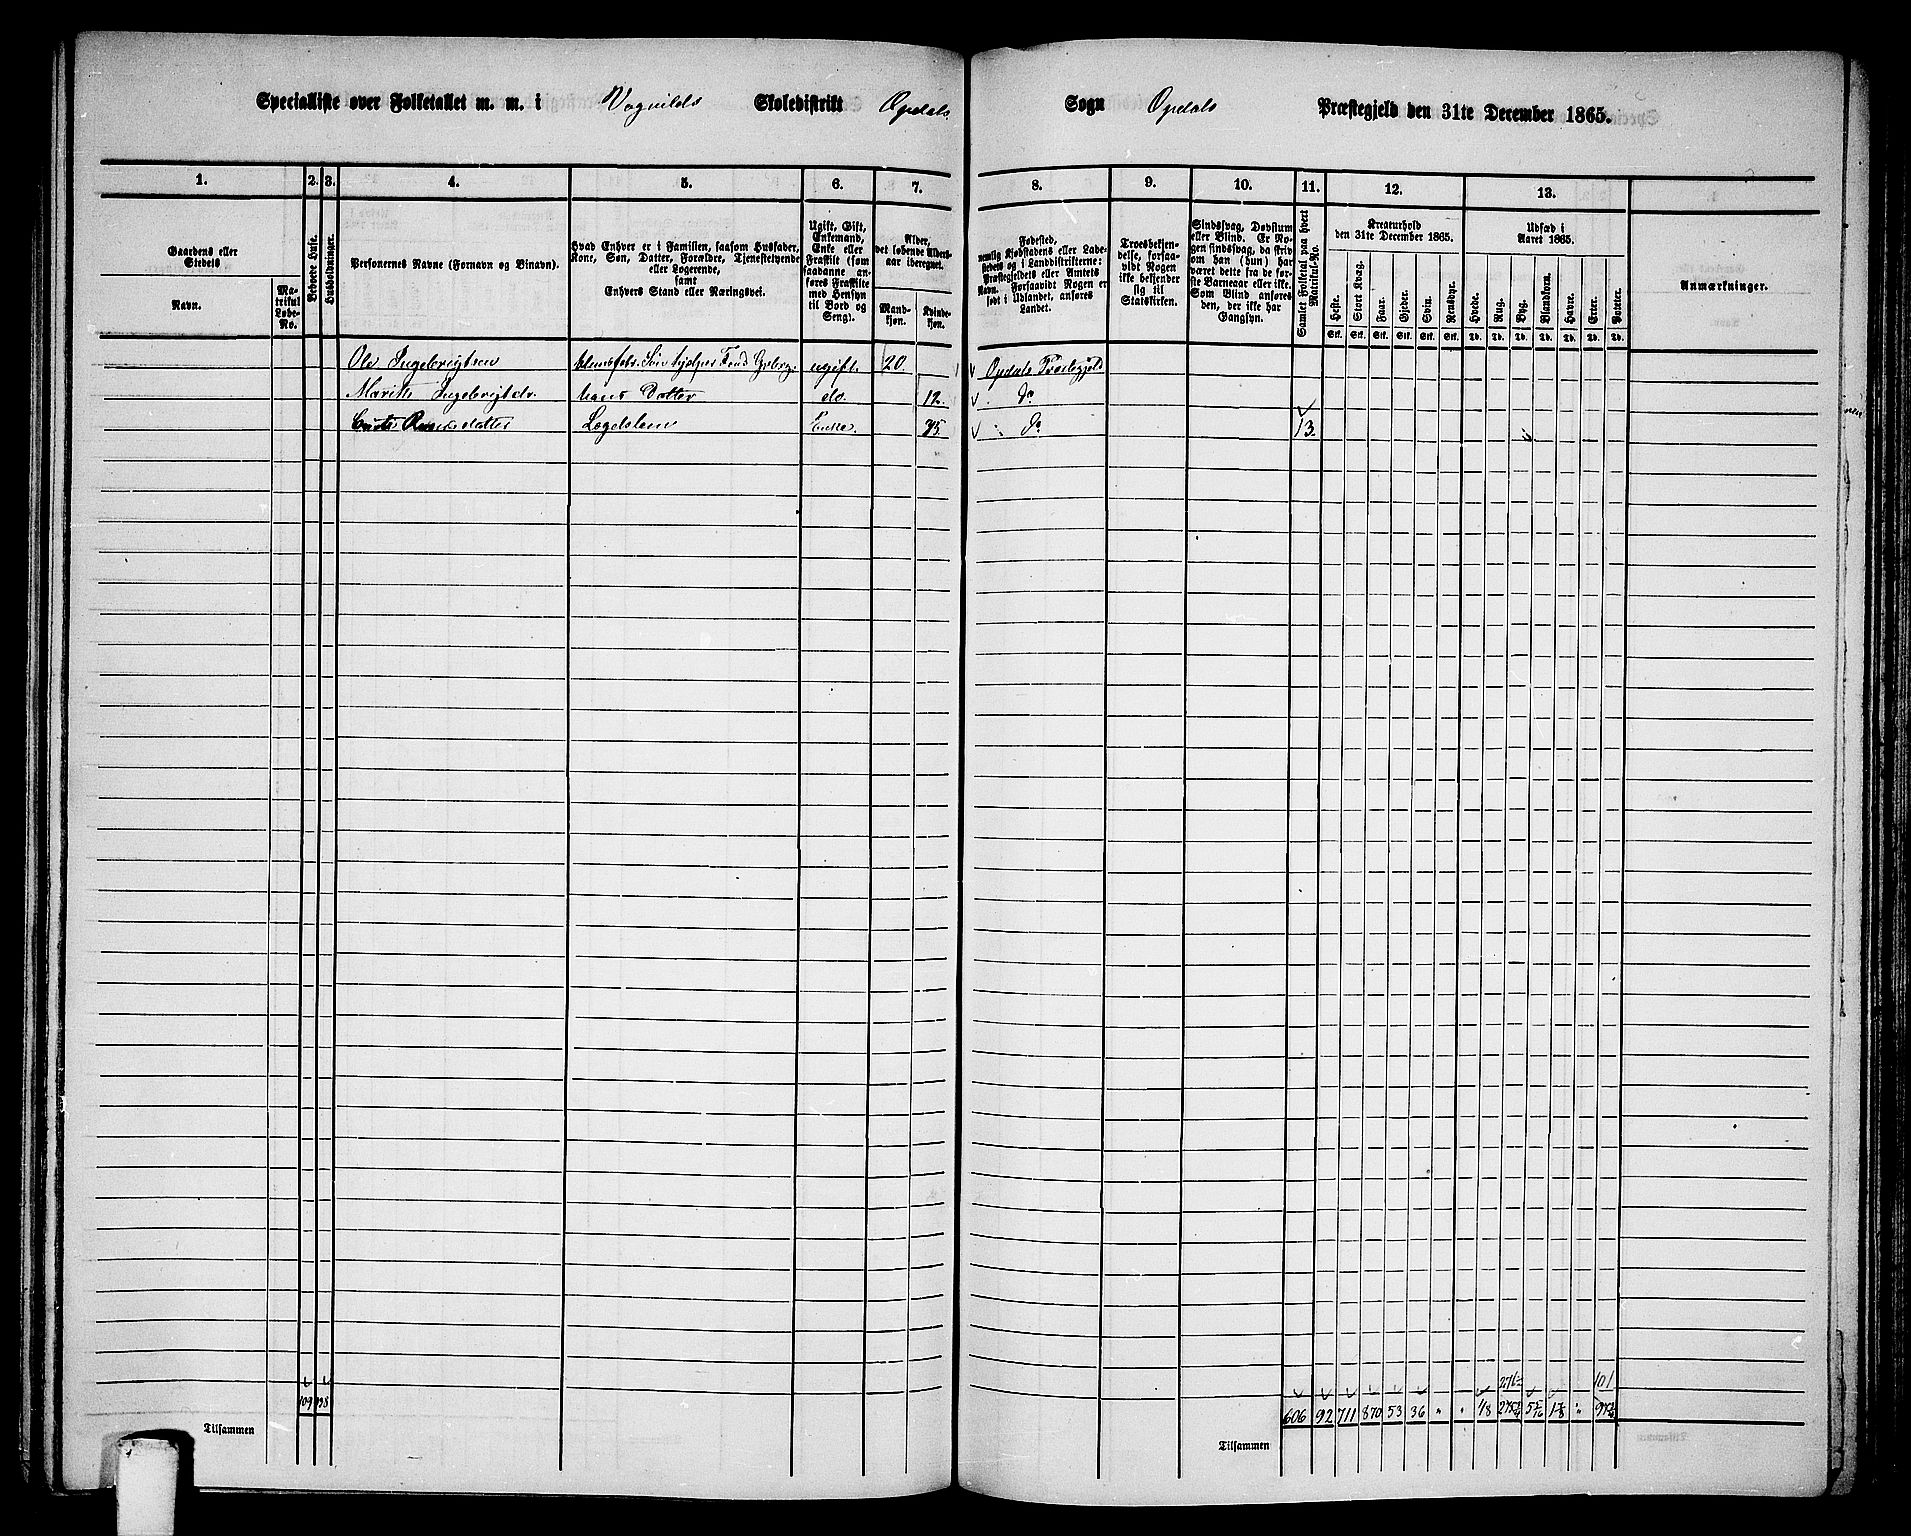 Specialliste over Folketallet m. m. i Vognilds Skoledistrikt Opdals Sogn Opdals Præstegjeld den 31te December 1865.
1. 2. 3. 4. 5. 6. 7. 8. 9. 10. 11. 12. 13.
Gaardens eller Stedets
Navn.
Matrikul Løbe-No.
Beboede Huse.
Husholdninger.
Personernes Navne (Fornavn og Binavn).
Hvad Enhver er i Familien, saasom Husfader,
Kone, Søn, Datter, Forældre, Tjenestetyende
eller Logerende,
samt
Enhvers Stand eller Næringsvei.
Ugift, Gift,
Enkemand,
Enke eller
Fraskilt (som
saadanne anføres
Fraskilte
med Hensyn
til Bord og
Seng).
Alder,
det løbende Alders-
aar iberegnet.
Mand-
kjøn.
Kvinde-
kjøn.
Fødested,
nemlig Kjøbstadens eller Lade-
stedets og i Landdistrikterne:
Præstegjeldets eller Amtets
Navn. Forsaavidt Nogen er
født i Udlandet, anføres
Landet.
Troesbekjen-
delse, forsaa-
vidt Nogen
ikke bekjender
sig til
Statskirken.
Sindssvag, Døvstum
eller Blind. Er No-
gen sindssvag, da skriv
om han (hun) har
været dette fra de før-
ste Barneaar eller ikke.
Som Blind anføres
den, der ikke har
Gangsyn.
Samlet Folketal paa hvert Matrikul-No.
Kreaturhold
den 31te December 1865.
Heste. Stort Kvæg. Faar. Gjeder. Svin. Rensdyr.
Stk. Stk. Stk. Stk. Stk. Stk.
Udsæd i
Aaret 1865.
Hvede. Rug. Byg. Blandkorn. Havre. Erter. Poteter.
Td. Td. Td. Td. Td. Td. Td.
Anmærkninger.
Ole Ingebrigtsen ugift. 20. Opdals Præstegjeld
Marit Ingebrigtdr. hans Datter do. 12. do
datter Lægdslem Enke. 75. do 13.
276 101
109 606 92 711 870 53 36 " " 48 "
Tilsammen
Tilsammen